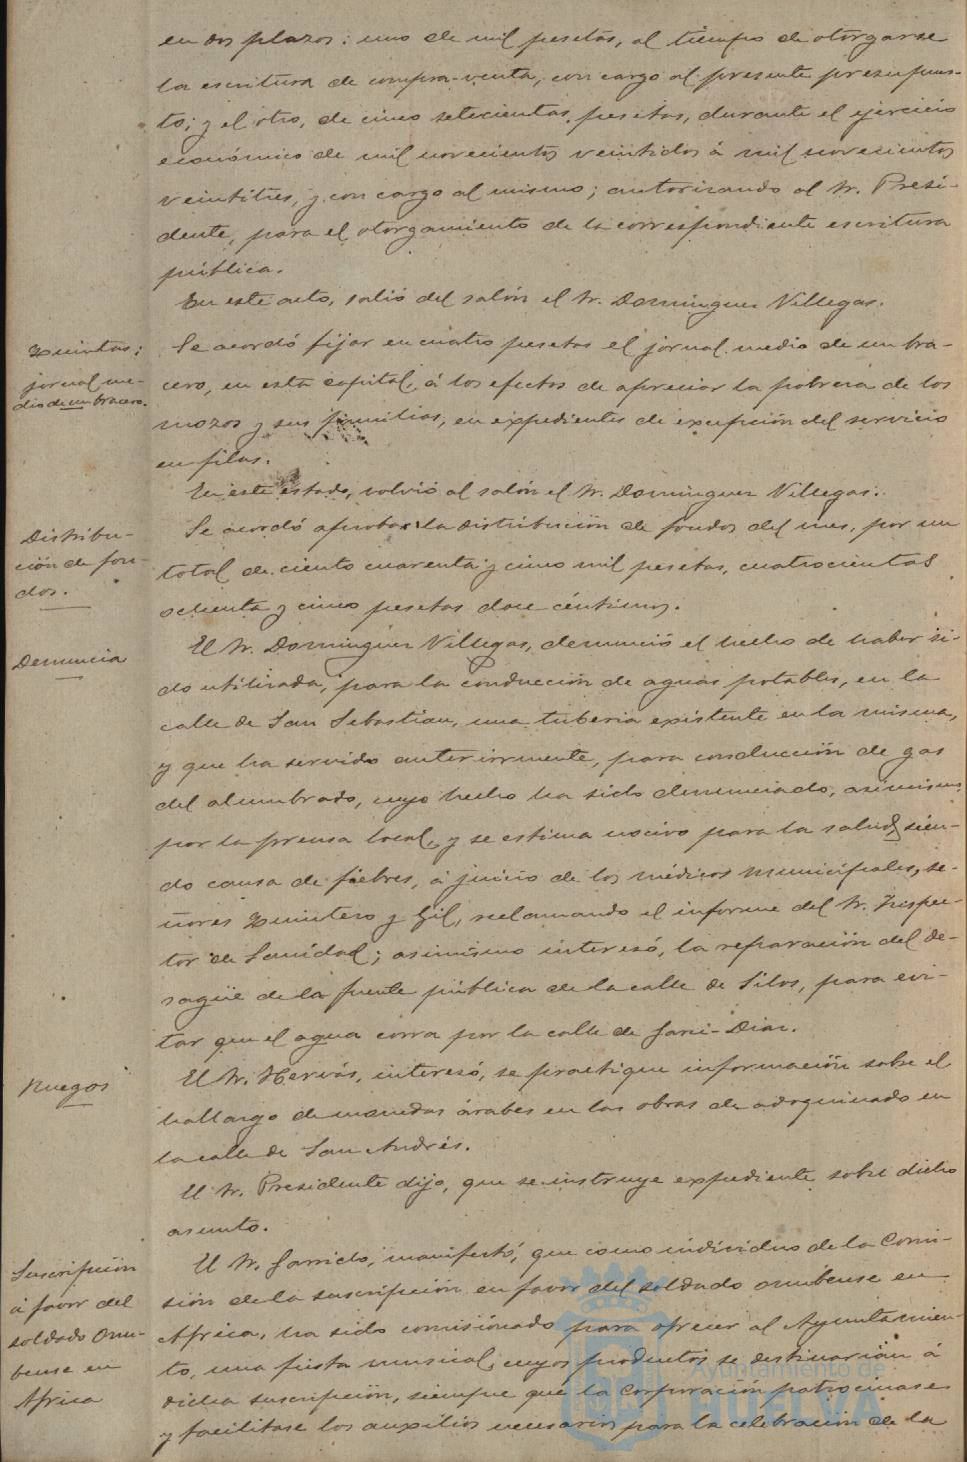 en dos plazos: uno de mil pesetas, al tiempo de otorgarse
la escritura de compra-venta, con cargo al presente presupues-
to; y el otro, de cinco setecientas pesetas, durante el ejercicio
económico de mil novecientos veintidos á mil novecientos
veintitres, y con cargo al mismo; autorizando al Sr. Presi-
dente, para el otorgamiento de la correspondiente escritura
pública.
En este acto, salió del salón el Sr. Dominguez Villegas.
Quintas:
jornal me-
dio de un bracero.
Se acordó fijar en cuatro pesetas el jornal medio de un bra-
cero, en esta capital, á los efectos de apreciar la pobreza de los
mozos y sus familias, en expedientes de excepción del servicio
en filas.
En este estado, volvió al salón el Sr. Dominguez Villegas.
Distribu-
ción de fon-
dos.
Se acordó aprobar la distribución de fondos del mes, por un
total de ciento cuarenta y cinco mil pesetas, cuatrocientas
ochenta y cinco pesetas doce céntimos.
Denuncia
El Sr. Dominguez Villegas, denunció el hecho de haber si-
do utilizada, para la conducción de aguas potables, en la
calle de San Sebastian, una tuberia existente en la misma,
y que ha servido anteriormente, para conducción de gas
del alumbrado, cuyo hecho ha sido denunciado, asimismo,
por la prensa local, y se estima nocivo para la salud, sien-
do causa de fiebres, á juicio de los médicos municipales, se-
ñores Quintero y Gil, reclamando el informe del Sr. Inspec-
tor de Sanidad; asimismo interesó, la reparación del de-
sagüe de la fuente pública de la calle de Silos, para evi-
tar que el agua corra por la calle de Garci-Diaz.
Ruegos
El Sr. Hervás, interesó, se practique información sobre el
hallazgo de monedas árabes en las obras de adoquinado en
la calle de San Andrés.
El Sr. Presidente dijo, que se instruye expediente sobre dicho
asunto.
Suscripción
á favor del
soldado Onu-
bense en
Africa
El Sr. Garrido, manifestó, que como individuo de la Comi-
sión de la suscripción en favor del soldado onubense en
Africa, ha sido comisionado para ofrecer al Ayuntamien-
to, una fiesta musical, cuyos productos se destinarián á
dicha suscripción, siempre que la Corporación patrocinase
y facilitase los auxilios necesarios para la celebración de la
Ayuntamiento de
HUELVA